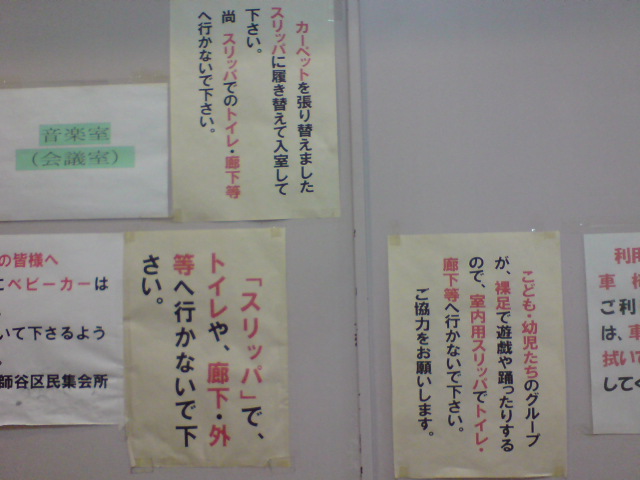 音楽室
（会議室）
カーペットを張り替えました
スリッパに履き替えて入室して
下さい。
尚 スリッパでのトイレ・廊下等
へ行かないで下さい。
の皆様へ
ベビーカーは
いて下さるよう
師谷区民集会所
「スリッパ」で、
トイレや、廊下・外
等へ行かないで下
さい。
こども・幼児たちのグループ
が、裸足で遊戯や踊ったりする
ので、室内用スリッパでトイレ・
廊下等へ行かないで下さい。
ご協力をお願いします。
利用
車椅
ご利
は、車
拭い
してく